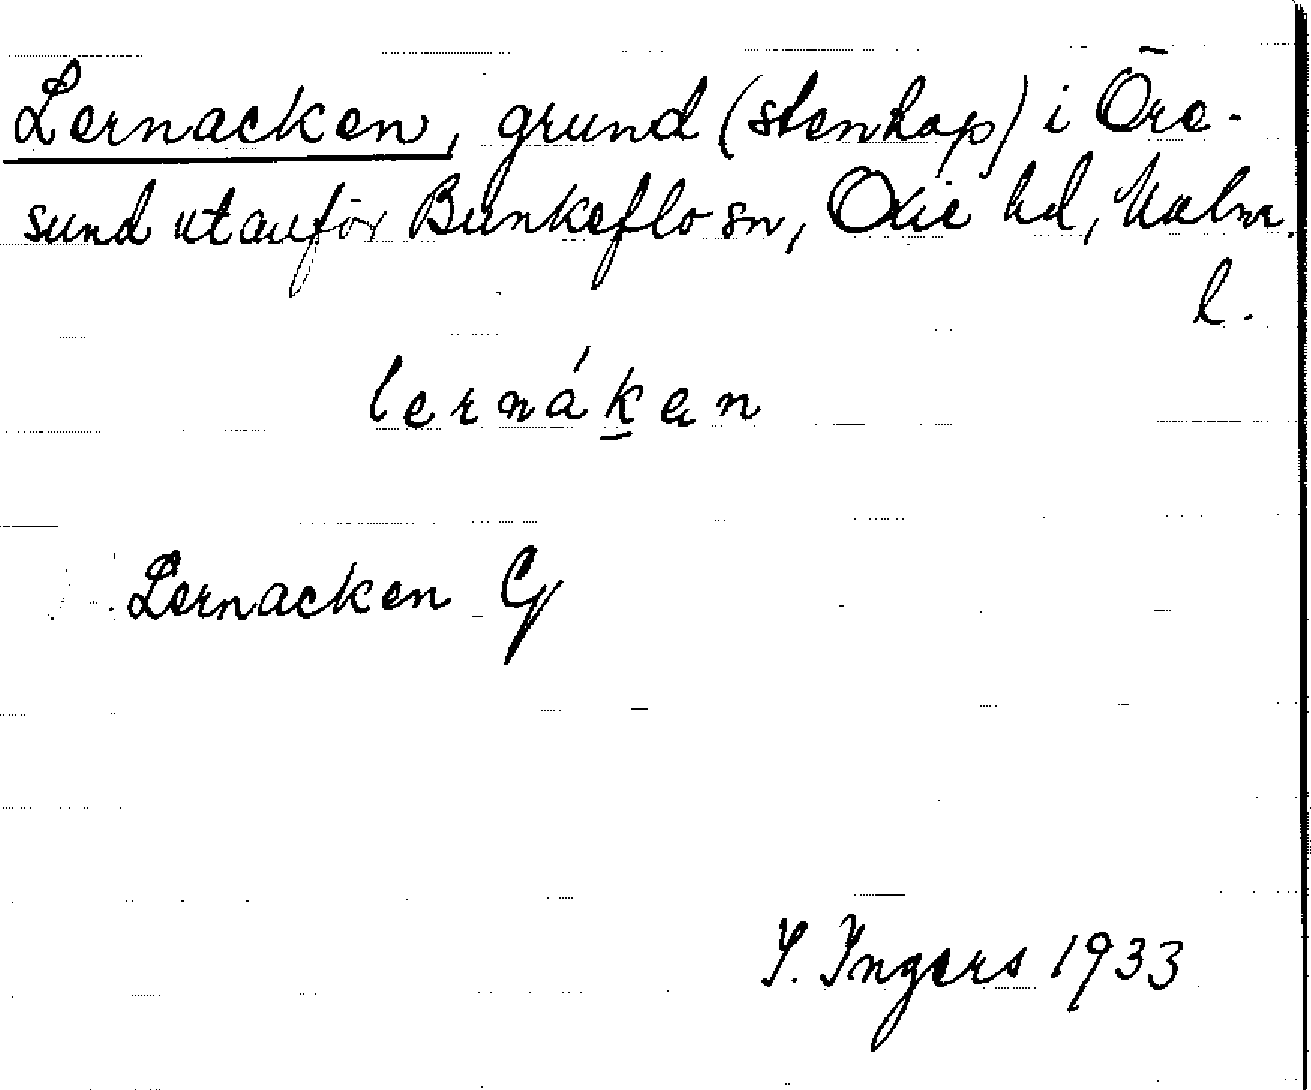 Lernacken, grund (stenhop) i Öre-
sund utanför Bunkeflo sn, Oxie hd, Malm.
l.
lernáken
Lernacken G
I. Ingers 1933